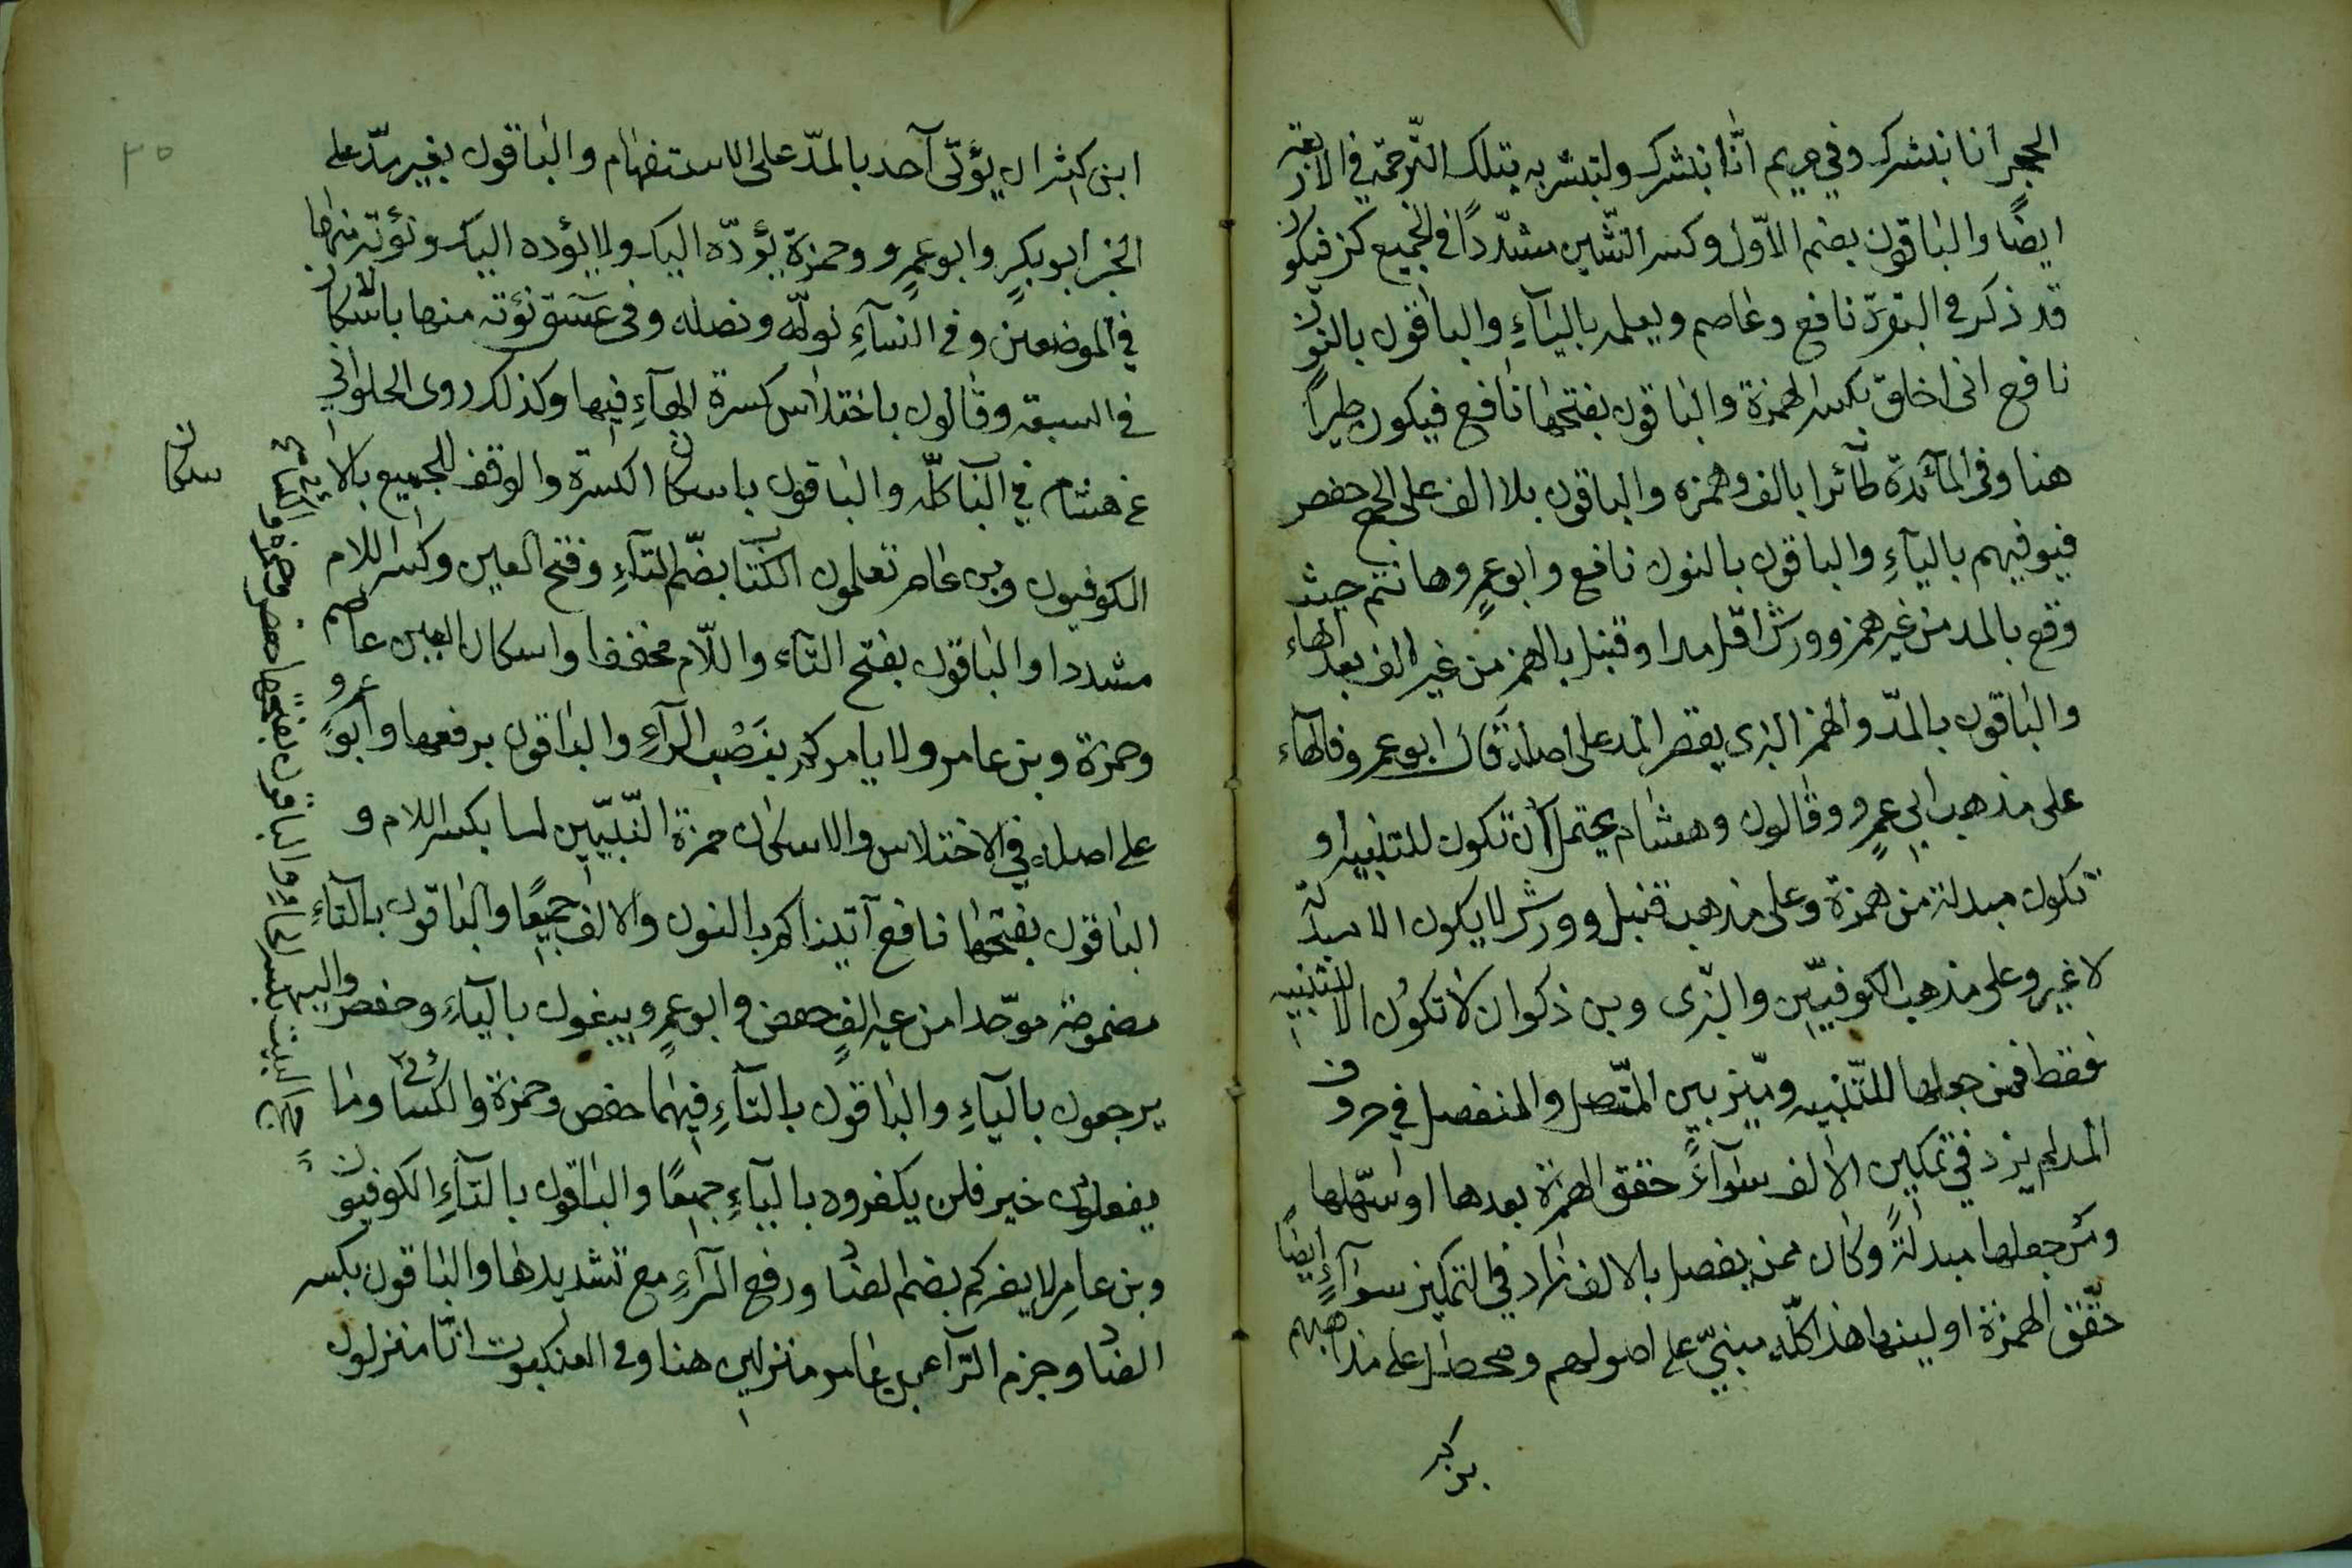 الحجر انا نبشرك وفي مريم انّا نبشرك ولتبشر به بتلك التّرجمة في الاربعة
ايضًا والباقون بضم الاوّل وكسر الشّين مشدّدًا في الجميع كن فيكون
قد ذكر في البقرة نافع وعاصم ويعلمه بالياءِ والباقون بالنّون
نافع انى اخلق بكسر الهمزة والباقون بفتحها نافع فيكون طيراً
هنا وفي المآئدة طآئرا بالف وهمزه والباقون بلا الف على الجمع حفص
فيوفيهم باليآءِ والباقون بالنون نافع وابو عمرٍو هانتم حيث
وقع بالمد من غير همز وورش اقل مدا وقنبل بالهمز من غير الف بعد الهاء
والباقون بالمدّ والهمز البزى يقصر المد على اصله قال ابو عمرو فالهاء
على مذهب ابي عمرٍو وقالون وهشام يحتمل ان تكون للتنبيه او
تكون مبدلة من همزة وعلى مذهب قنبل وورش لا يكون الا مبدلة
لا غير وعلى مذهب الكوفيّين والبزّى وبن ذكوان لا تكون الا للتنبيه
فقط فمن جعلها للتّنبيه وميّز بين المتّصل والمنفصل في حروف
المد لم يزد في تمكين الالف سوآءً حقق الهمزة بعدها او سهّلها
ومن جعلها مبدلةً وكان ممن يفصل بالالف زاد في التمكين سوآءٍ ايضًا
حقّق الهمزة او لينها هذا كلّه مبنىّ على اصولهم ومحصّل على مذاهبهم
ابن كثير ان يؤتى آحد بالمدّ على الاستفهام والباقون بغير مدّ على
الخبر ابو بكرٍ وابو عمرٍو وحمزة يؤدّه اليك ولا يؤده اليك ونؤته منها
في الموضعين وفي النسآءِ نولّه ونصله وفي عسق نؤته منها باسكان
في السبعة وقالون باختلاس كسرة الهآءِ فيها وكذلك روى الحلوانى
عن هشام في الباب كلّه والباقون باسكان الكسرة والوقف للجميع بالا
سكان
الكوفيون وبن عامر تعلمون الكتاب بضّم التآءِ وفتح العين وكسر اللام
مشددا والباقون بفتح التآء واللّام مخففا واسكان العين عاصم
وحمزة وبن عامر ولا يامركم بنَصْب الرآءِ والباقون برفعها وابو عمرو
على اصله في الاختلاس والاسكان حمزة النّبيّين لما بكسر اللام و
الباقون بفتحها نافع آتيناكم بالنون والالف جميعًا والباقون بالتآءِ
مضمومة موحّدا من غير الفٍ حفص وابو عمرٍو يبغون باليآء وحفص واليه
يرجعون باليآءِ والباقون بالتآءِ فيهما حفص وحمزة والكسائى وما
يفعلون خير فلن يكفروه باليآءِ جميعًا والباقون بالتآءِ الكوفيون
وبن عامر لا يضركم بضم الضاد ورفع الرآءِ مع تشديدها والباقون بكسر
الضاد وجزم الرّآ بن عامر منزلين هنا وفى العنكبوت انّا منزلون